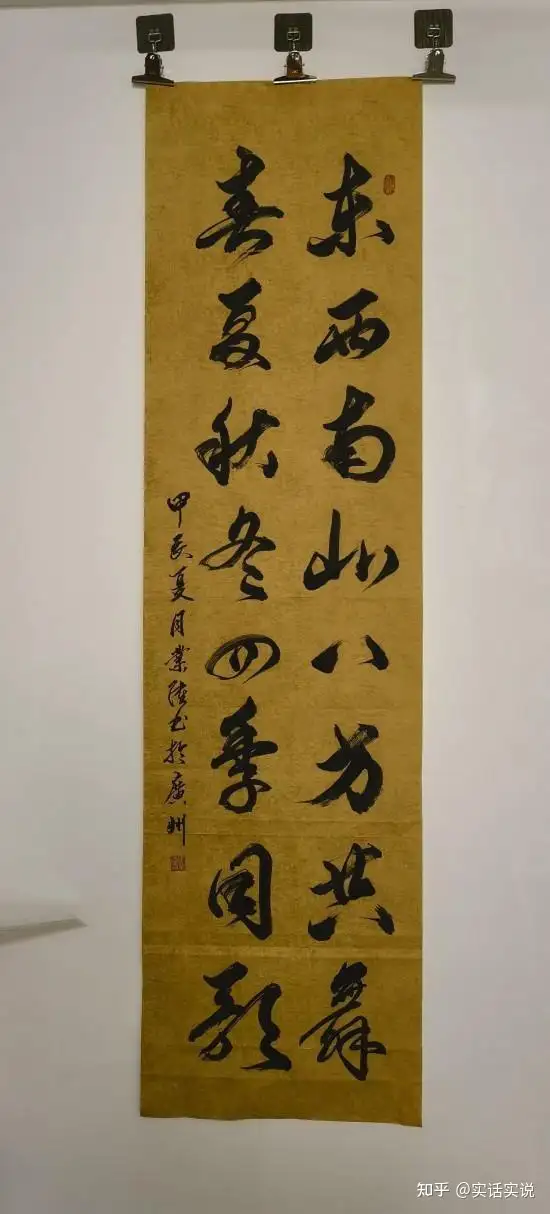 东西南北八方共舞
春夏秋冬四季同歌
甲辰夏月業陸书於廣州
知乎 @实话实说